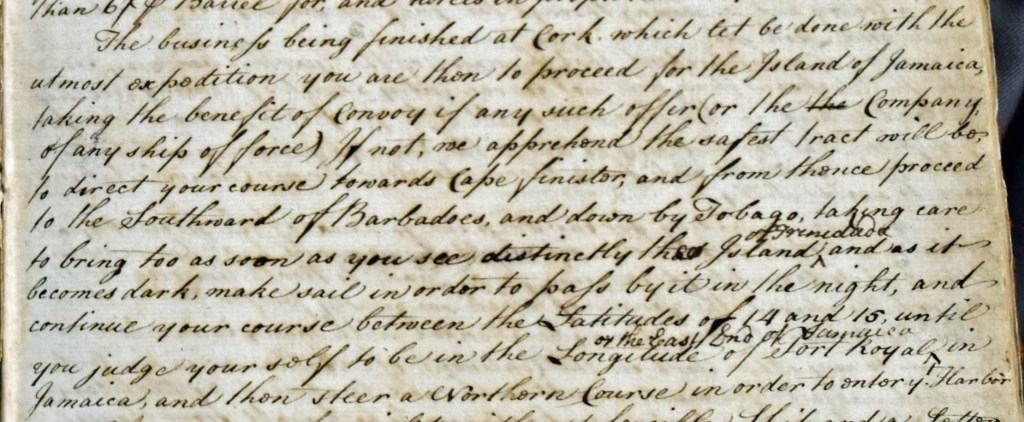 than 6/ ⅌ Barrel for, and
The business being finished at Cork which let be done with the
utmost expedition you are then to proceed for the Island of Jamaica,
taking the benefit of Convoy if any such offer (or the the Company
of any ship of force) If not, we apprehend the safest tract will be,
to direct your course towards Cape finister, and from thence proceed
to the Southward of Barbadoes, and down by Tobago, taking care
of Trinidada
to bring too as soon as you see distinctly the Island, and as it
becomes dark, make sail in order to pass by it in the night, and
continue your course between the Latitudes of 14 and 15. until
or the East End of Jamaica
you judge your self to be in the Longitude of Port Royal, in
Jamaica, and then steer a Northern Course in order to enter y. Harbor